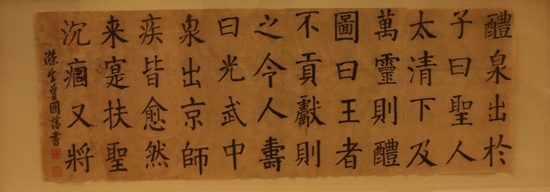 醴泉出於
子曰聖人
太清下及
萬靈則醴
圖曰王者
不貢獻則
之令人壽
曰光武中
泉出京師
疾皆愈然
来寔扶聖
沉痼又將
滌生曾國藩書